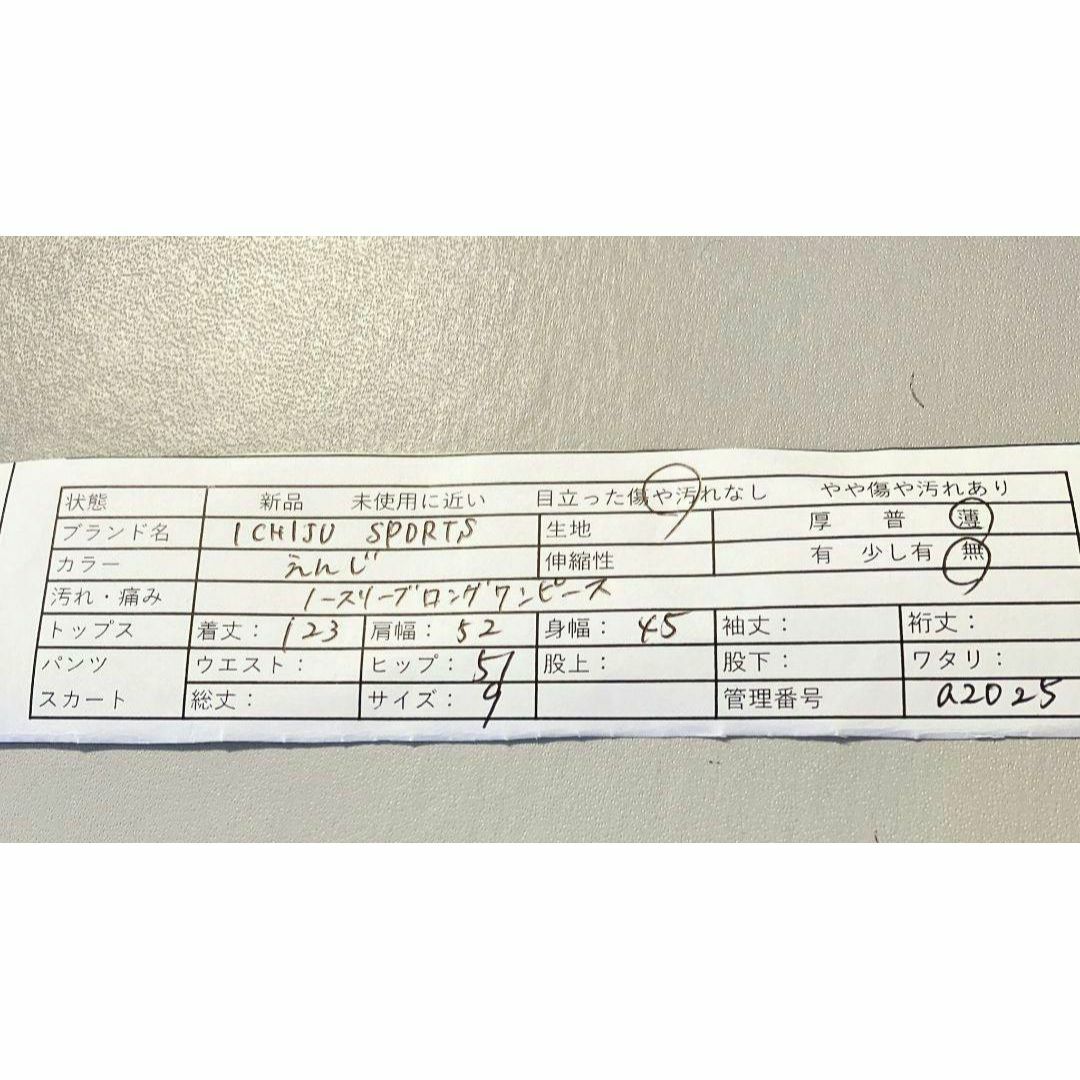 状態 新品 未使用に近い 目立った傷や汚れなし やや傷や汚れあり
ブランド名 ICHIJU SPORTS 生地 厚 普 薄
カラー えんじ 伸縮性 有 少し有 無
汚れ・痛み ノースリーブロングワンピース
トップス 着丈: 123 肩幅: 52 身幅: 45 袖丈: 裄丈:
パンツ ウエスト: ヒップ: 51 股上: 股下: ワタリ:
スカート 総丈: サイズ: 9 管理番号 a2025